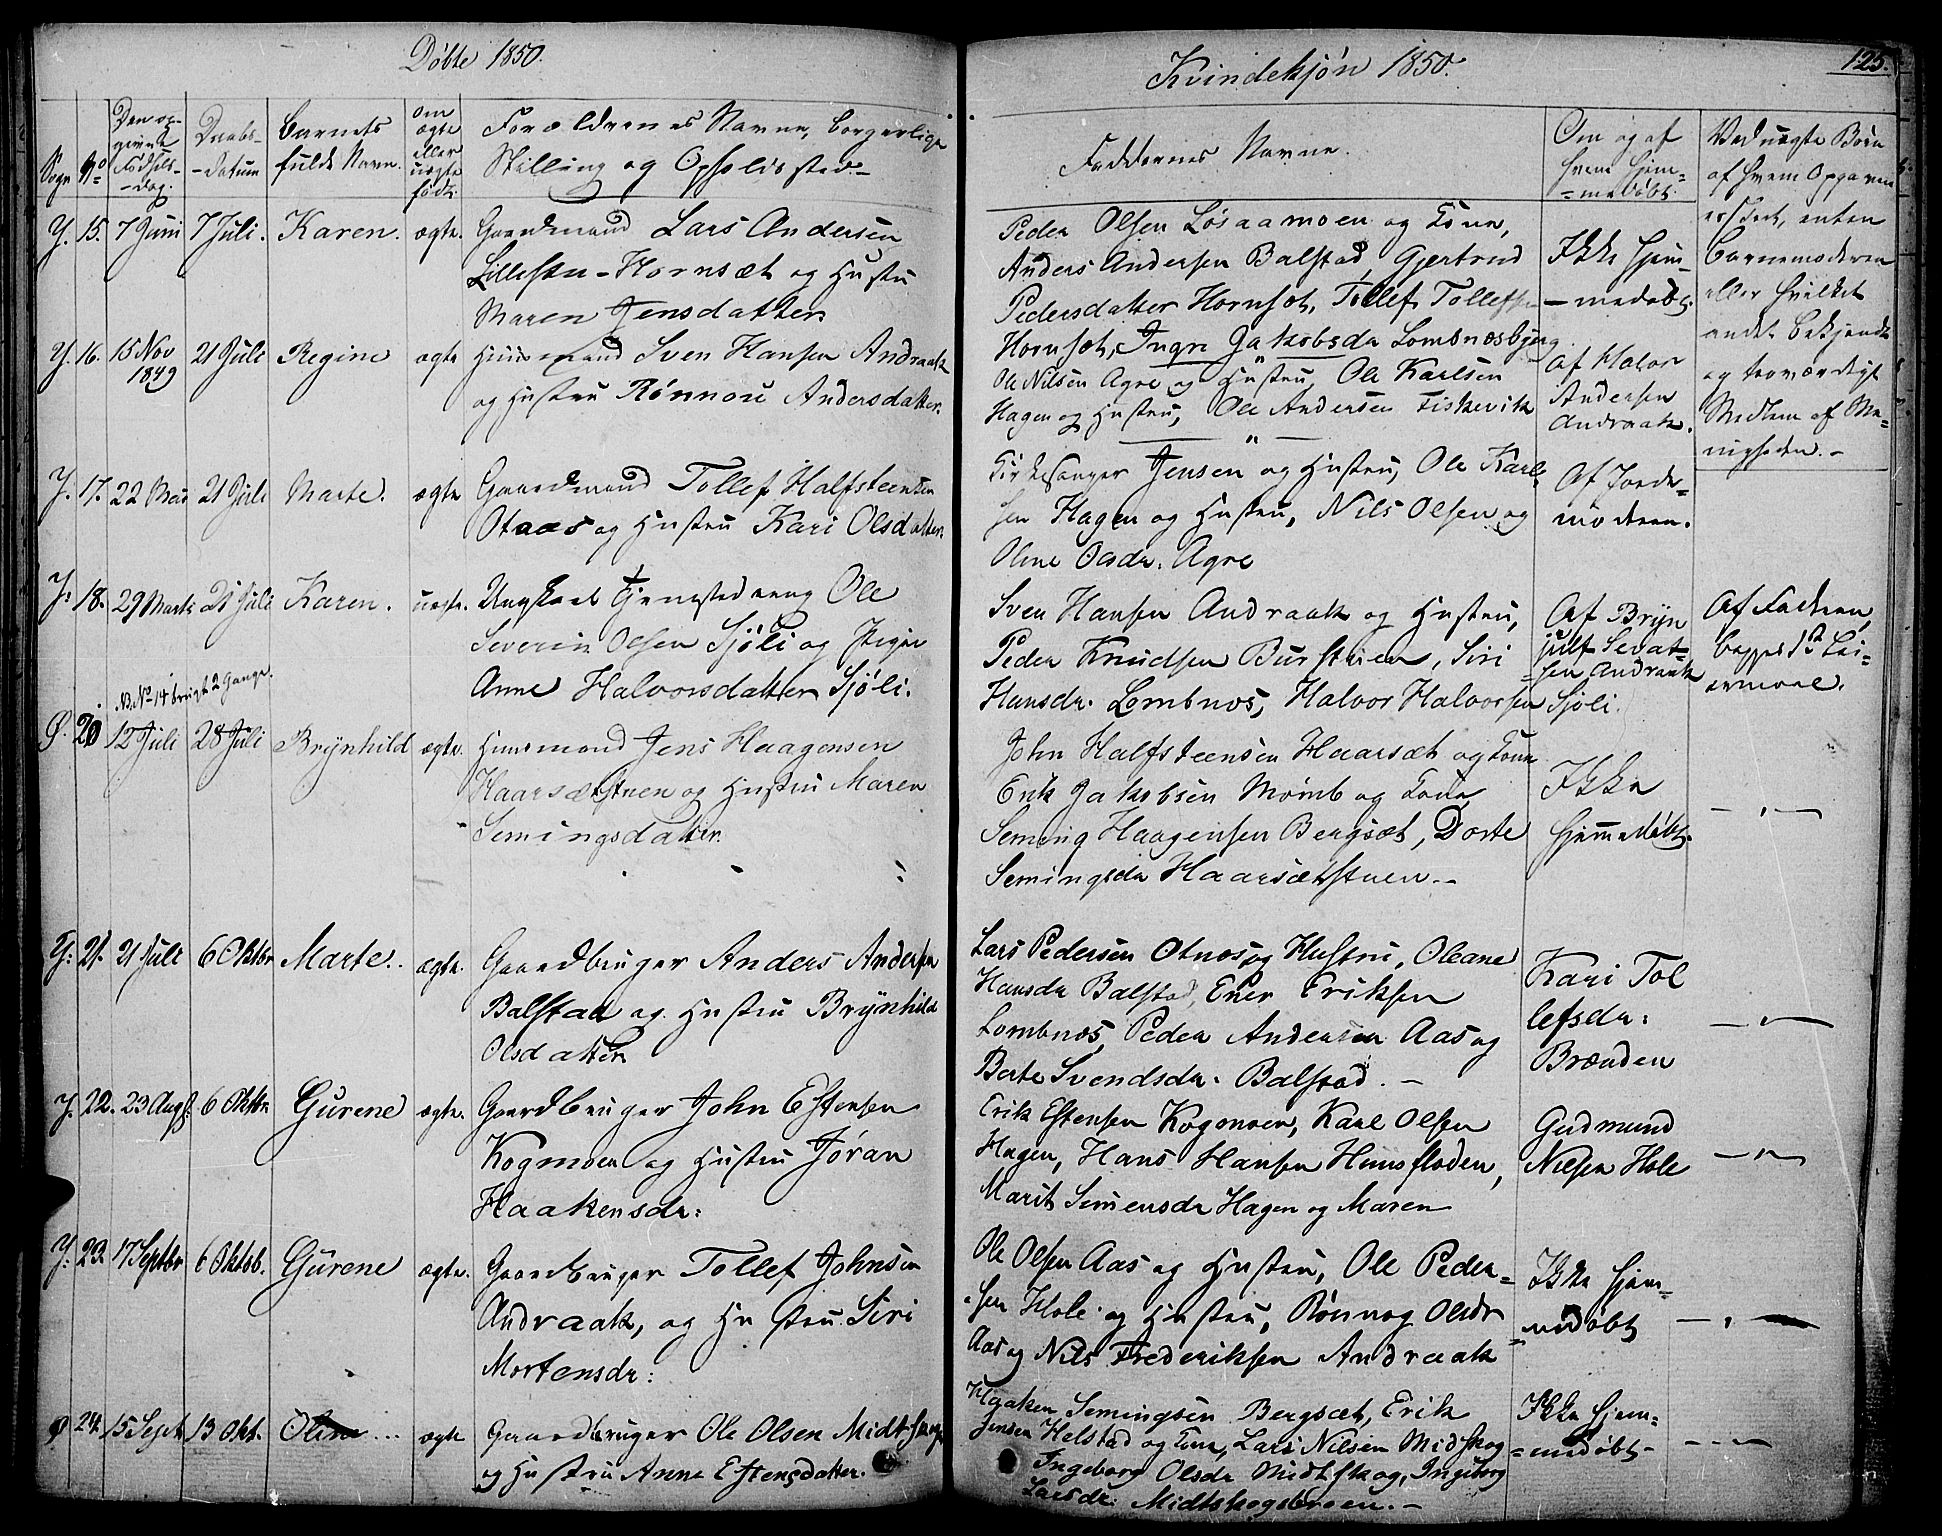 Døbte 1850.
Kvindekjøn 1850.
125.
Sogn
No
Den op-
givne
Fødsels-
-dag.
Daabs-
-datum
Barnets
fulde Navn.
om
ægte
eller
uægte
født.
Forældrenes Navne, borgerlige
Stilling og Opholdssted.-
Faddernes Navne.
Om og af
hvem hjem-
=medøbt.
Ved uægte Børn
af hvem Opgaven
er skeet, enten
Barnemoderen
eller hvilket
andet bekjendt
og troværdigt
Medlem af Me-
nigheden.-
Y. 15. 7 Juni 7 Juli. Karen. ægte. Gaardmand Lars Andersen
Lillestu-Hornsæt og Hustru
Maren Jensdatter
Peder Olsen Løsaamoen og Kone,
Anders Andersen Balstad, Gjertrud
Pedersdatter Hornset, Tollef Tollefsen
Hornset, Ingre Jakobsdr Lombnæsbjerg.
Ikke hjem-
-medøbt.
Y. 16. 15 Nov 1849 21 Juli Regine ægte Huusmand Sven Hansen Andraak
og Hustru Rønnou Andersdatter.
Ole Nilsen Agre og Hustru, Ole Karlsen
Hagen og Hustru, Ole Andersen Fiskevik
af Halvor
Andersen
Andraak.
Y. 17. 22 Mai 21 Juli Marte. ægte Gaardmand Tollef Halfsteensen
Otaas og Hustru Kari Olsdatter.
Kirkesanger Jensen og Hustru, Ole Karl-
sen Hagen og Hustru, Nils Olsen og
Oline Olsdr. Agre
Af Jorde-
moderen.
Y. 18. 29 Marts 21 Juli Karen. uægte. Ungkarl Tjenestedreng Ole
Severin Olsen Sjøli og Pigen
Anne Halvorsdatter Sjøli.
Sven Hansen Andraak og Hustru,
Peder Knudsen Burstuen, Siri
Hansdr. Lombnes, Halvor Halvorsen Sjøli.
Af Bryn
julf
sen Andraak
Af Faderen,
begges 1ste Lei-
ermaal.
NB. No 14 brugt 2 Gange.
20 12 Juli 28 Juli Brynhild ægte. Huusmand Jens Haagensen
Haarsætstuen og Hustru Maren
Semingsdatter.
John Halfsteensen Haarsæt og Kone
Erik Jakobsen Momb og Kone
Seming Haagensen Bergsæt, Dorte
Semingsdr Haarsætstuen.-
Ikke
hjemmedøbt.
- " -
Y. 21. 21 Juli 6 Oktbr Marte. ægte. Gaardbruger Anders Andersen
Balstad og Hustru Brynhild
Olsdatter
Lars Pedersen Otnes og Hustru, Oleane
Hansdr Balstad, Ener Eriksen
Lombnes, Peder Andersen Aas og
Berte Svendsdr. Balstad. -
Kari Tol
lefsdr.
Brænden
- " -
Y. 22. 23 Augs. 6 Oktbr Gurene ægte. Gaardbruger John Estensen
Kogmoen og Hustru Jøran
Haakensdr.
Erik Estensen Kogmoen, Karl Olsen
Hagen, Hans Hansen Huusfloden,
Marit Simensdr Hagen og Maren
Gudmund
Nilsen Hole
- " -
Y. 23. 17 Septbr 6 Oktob. Gurene ægte. Gaardbruger Tollef Johnsen
Andraak, og Hustru Siri
Mortensdr.
Ole Olsen Aas og Hustru, Ole Peder-
sen Hole og Hustru, Rønnog Olsdr
Aas og Nils Frederiksen Andraak
Ikke hjem-
=medøbt
- " -
24. 15 Sept 13 Okt. Oline ... ægte Gaardbruger Ole Olsen Midtskog
og Hustru Anne Estensdatter.
Haaken Semingsen Bergsæt, Erik
Jensen Helstad og Kone, Lars Nilsen Midskog
Ingeborg Olsdr Midtskog, Ingeborg
Larsdr. Midtskogsbraen.-
Ikke hjem-
=medøbt-
- " -